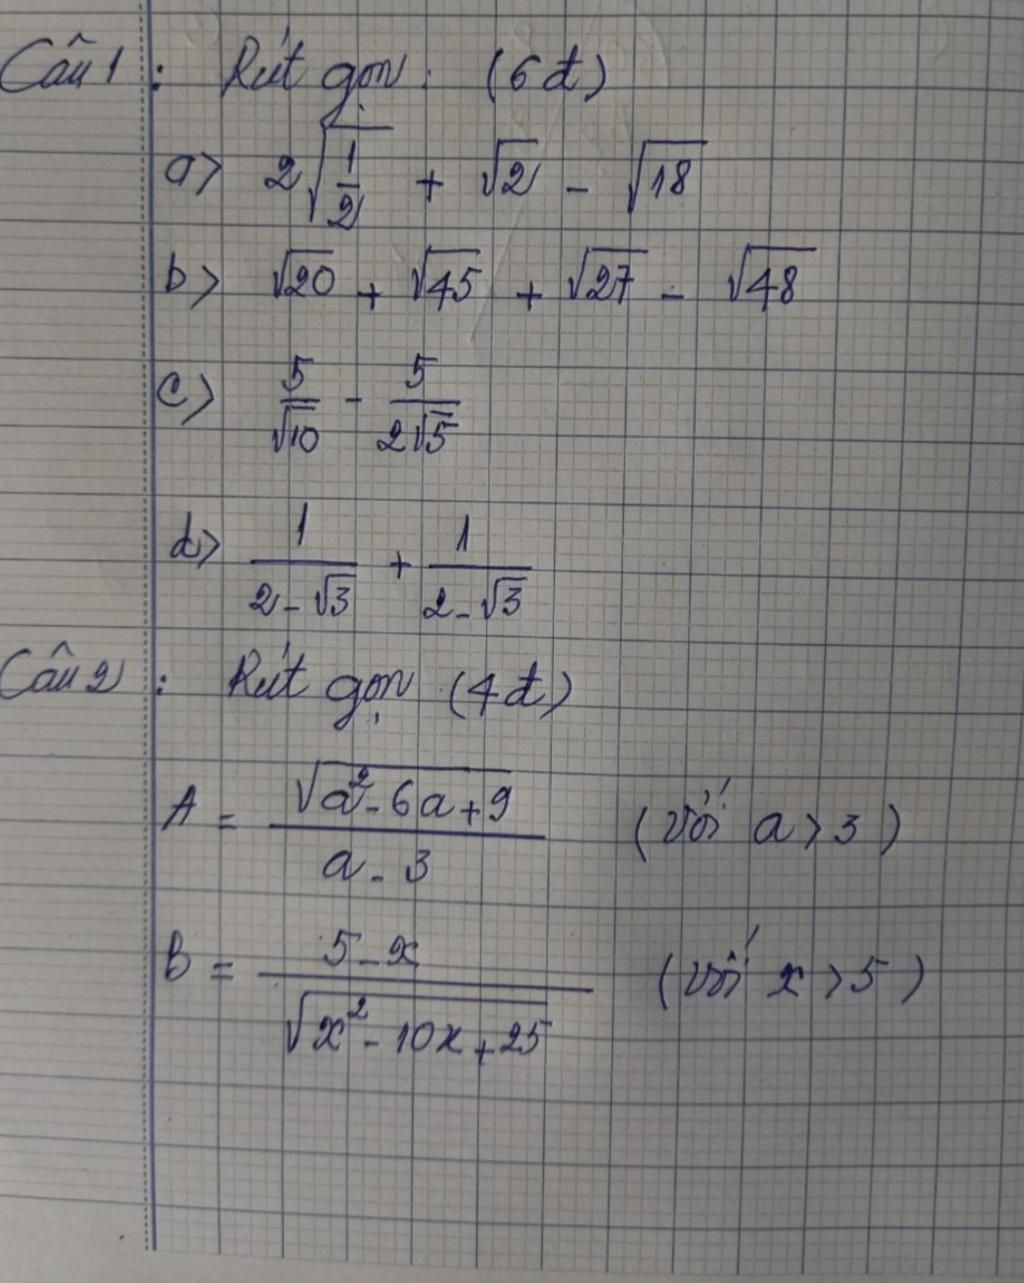 Câu 1 : Rút gọn : (6đ)
a> 2√(1/2) + √2 - √18
b> √20 + √45 + √27 - √48
c> 5/√10 - 5/(2√5)
d> 1/(2-√3) + 1/(2-√3)
Câu 2 : Rút gọn (4đ)
A = √(a²-6a+9)/(a-3) (với a>3)
B = (5-x)/√(x²-10x+25) (với x>5)